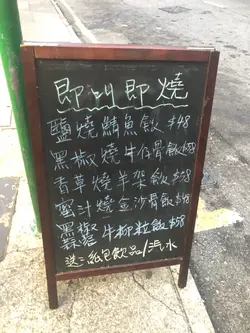 即叫即燒
鹽燒鯖魚飯 $48
黑椒燒牛仔骨飯 $58
香草燒羊架飯 $78
蜜汁燒金沙骨飯 $48
黑椒
蒜蓉 牛柳粒飯 $58
送:紙包飲品/汽水